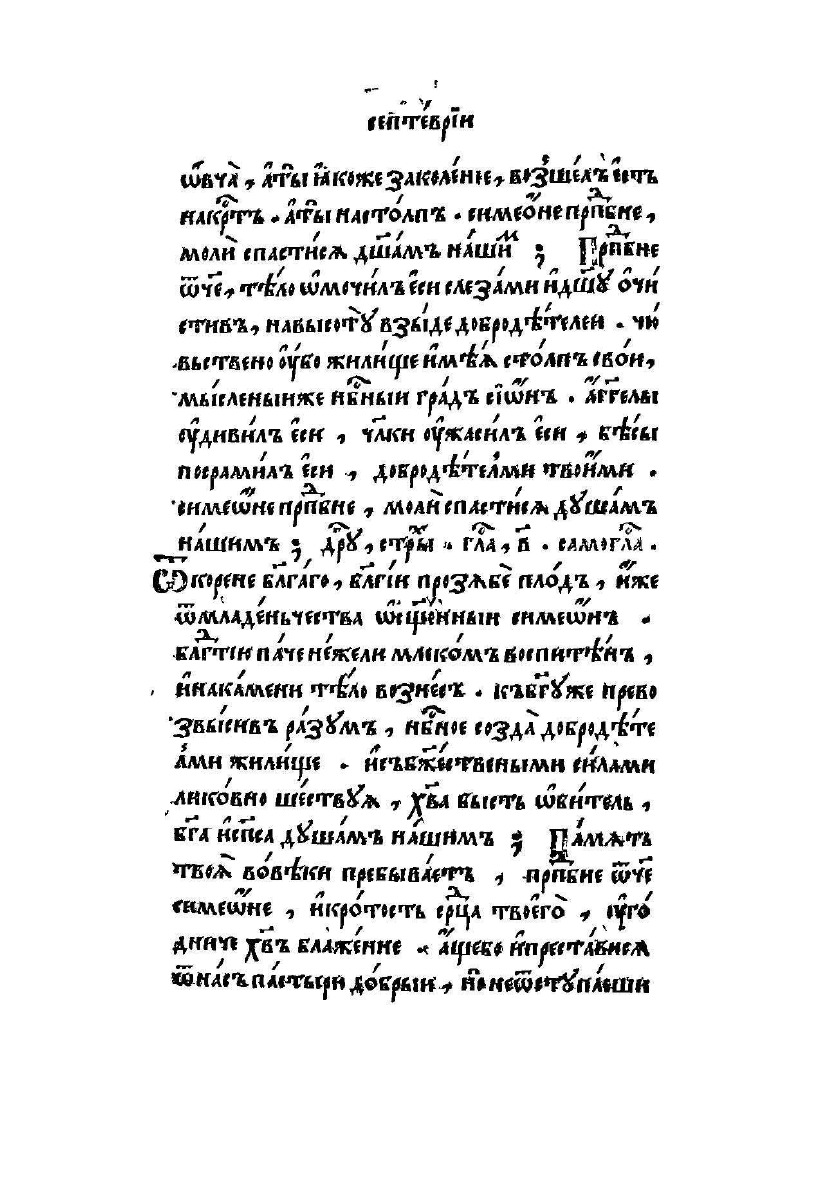 септе́врїи
ѻ҆вча̀, а҆ты̀ ꙗ҆́коже заколе́ние, возше́лъ є҆сть
накрⷭ҇тъ . а҆ты̀ настолпъ . симео́не прпⷣбне,
моли̏ спасти́сѧ дш҃а́мъ на́шиⷨ ; Прпⷣбне
ѿч҃е, тѣ́ло ѡ҆мочи́лъ є҆си слеза́ми и҆дш҃ꙋ ѻ҆чи
стивъ, навысотꙋ̀ взы́де добродѣ́телеи . чю́
вьствено оу҆́бо жили́ще и҆мѣ́ѧ сто́лпъ свои́,
мы́сленыиже нбⷭ҇ныи гра́дъ сїѡ́нъ . а҆́гг҃елы
оу҆диви́лъ є҆си , чл҃ки оу҆жаси́лъ є҆си , бѣ́сы
посрами́лъ є҆си , добродѣ́телми твои́ми .
симео́не прпⷣбне , моли спасти́сѧ дꙋша́мъ
на́шимъ ; дрꙋⷢ҇, стрⷯы . гла́ , в҃ . самогла́ .
Ѿ корене бл҃га́го, бл҃гїи прозѧбѐ пло́дъ , и҆́же
ѿмладе́ньчества ѡ҆сщ҃е́нныи симео́нъ .
блгⷣтїю па́че не́жели млеко́мъ воспитѣ́нъ ,
и҆нака́мени тѣ́ло возне́съ . къбг҃ꙋже прево
звы́сивъ ра́зꙋмъ , нбⷭ҇ное созда̀ добродѣ́те
лми жили́ще . и҆събж҃е́ствеными си́лами
лико́вно ше́ствꙋѧ , хв҃а бысть ѻ҆би́тель ,
бг҃а и҆сп҃са дꙋша́мъ на́шимъ ; Па́мѧть
твоѧ̀ во́вѣки пребыва́етъ , прпⷣбне ѿч҃е
симео́не , и҆кро́тость срⷣца твоего̀ , оу҆го́
дниче хв҃ъ блаже́нне . а҆́щебо и҆преста́висѧ
ѿна́съ па́стырю до́брыи , но̀ неѿстꙋпа́еши